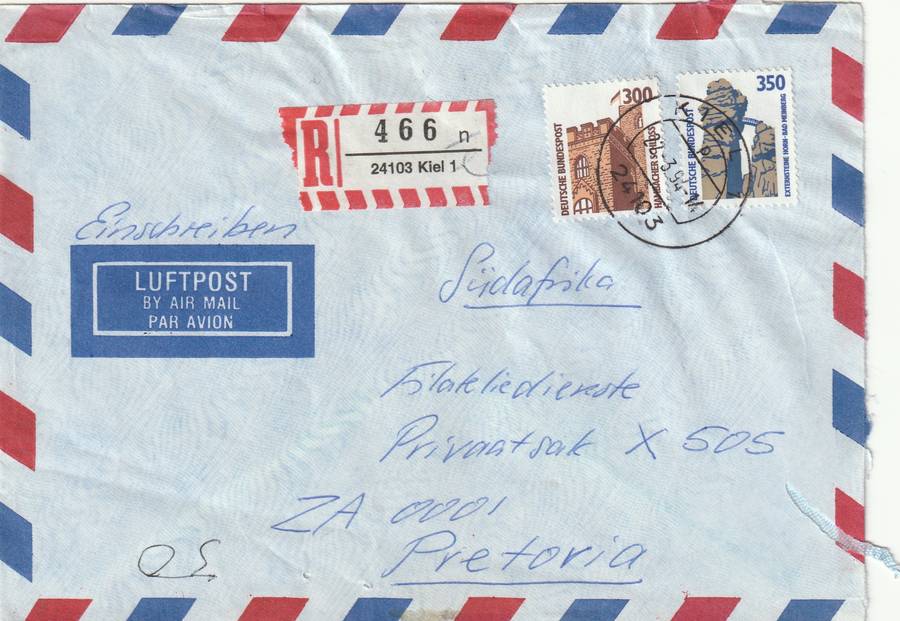 R 466 n
24103 Kiel 1
300
DEUTSCHE BUNDESPOST
HAMBACHER SCHLOSS
350
DEUTSCHE BUNDESPOST
EXTERNSTEINE HORN-BAD MEINBERG
KIEL 1
24103
Einschreiben
LUFTPOST
BY AIR MAIL
PAR AVION
Südafrika
Filateliedienste
Privaatsak X 505
ZA 0001
Pretoria